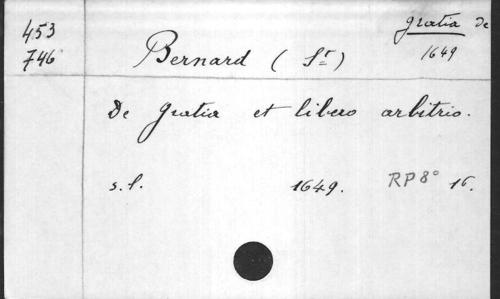 453
746
gratia de
1649
Bernard ( St )
De gratia et libero arbitrio.
s.l. 1649. RP 8° 16.